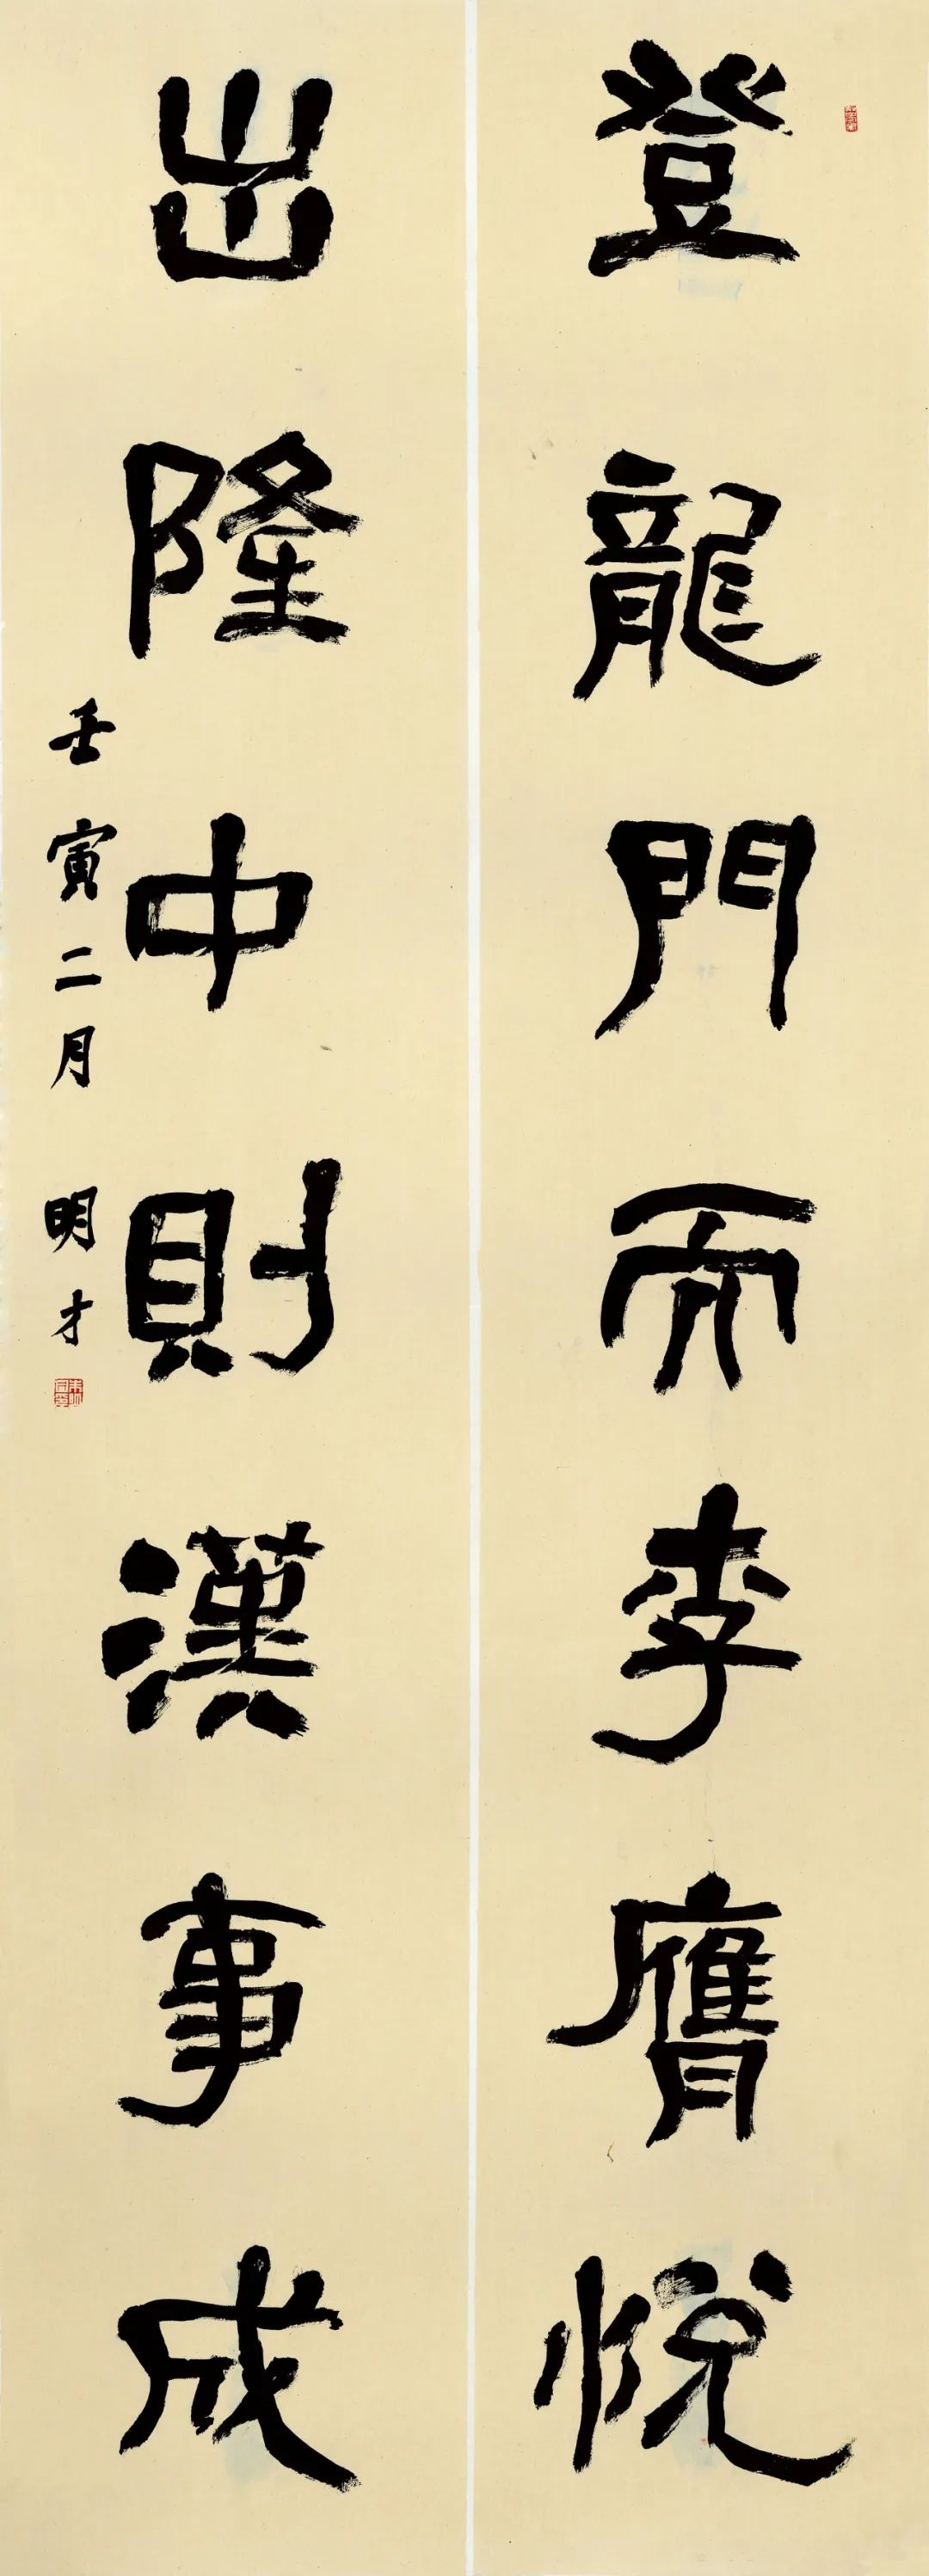 登龍門而李膺悅
出隆中則漢事成
壬寅二月 明才